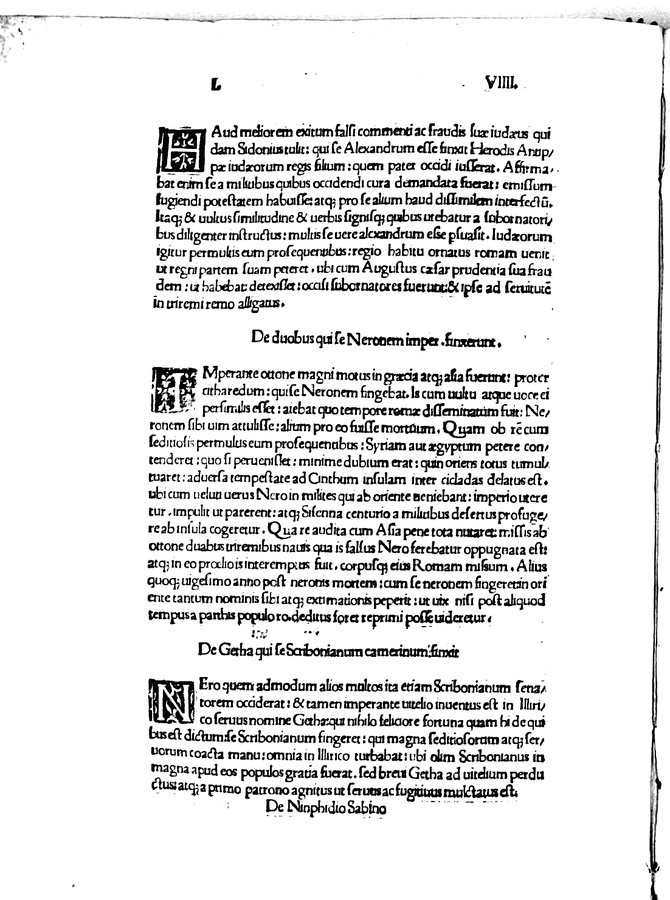 L VIIII.
HAud meliorem exitum falsi commenti ac fraudis suæ iudæus qui
dam Sidonius tulit: qui se Alexandrum esse finxit Herodis Antip/
pæ iudæorum regis filium: quem pater occidi iusserat. Affirma/
bat enim se a militibus quibus occidendi cura demandata fuerat: emissum
fugiendi potestatem habuisse: atq; pro se alium haud dissimilem interfectū.
Itaq; & uultus similitudine & uerbis signisq; quibus utebatur a subornatori/
bus diligenter instructus: multis se uere alexandrum esse psuasit. Iudæorum
igitur permultis eum prosequentibus: regio habitu ornatus romam uenit
ut regni partem suam peteret. ubi cum Augustus cæsar prudentia sua frau
dem: ut habebat: detexisset: occisi subornatores fuerunt: & ipse ad seruitutē
in triremi remo alligatus.
De duobus qui se Neronem imper. finxerunt.
IMperante ottone magni motus in græcia atq; asia fuerunt: propter
citharedum: qui se Neronem fingebat. Is cum uultu atque uoce ei
persimilis esset: aiebat quo tempore romæ disseminatum fuit: Ne/
ronem sibi uim attulisse: alium pro eo fuisse mortuum. Quam ob rē cum
seditiosis permultis eum prosequentibus: Syriam aut ægyptum petere con/
tenderet: quo si peruenisset: minime dubium erat: quin oriens totus tumul/
tuaret: aduersa tempestate ad Cinthum insulam inter cicladas delatus est.
ubi cum uelut uerus Nero in milites qui ab oriente ueniebant: imperio utere
tur. impulit ut parerent: atq; Sisenna centurio a militibus desertus profuge/
re ab insula cogeretur. Qua re audita cum Asia pene tota nutaret: missis ab
ottone duabus triremibus nauis qua is falsus Nero ferebatur oppugnata est:
atq; in eo prœlio is interemptus fuit. corpusq; eius Romam missum. Alius
quoq; uigesimo anno post neronis mortem: cum se neronem fingeret in ori
ente tantum nominis sibi atq; extimationis peperit: ut uix nisi post aliquod
tempus a parthis populo ro. deditus foret reprimi posse uideretur.
De Getha qui se Scribonianum camerinum finxit
NEro quem admodum alios multos ita etiam Scribonianum sena/
torem occiderat: & tamen imperante uitelio inuentus est in Illiri/
co seruus nomine Getha: qui nihilo feliciore fortuna quam hi de qui
bus est dictum: se Scribonianum fingeret: qui magna seditiosorum atq; ser/
uorum coacta manu: omnia in Illirico turbabat: ubi olim Scribonianus in
magna apud eos populos gratia fuerat. sed breui Getha ad uitelium perdu
ctus: atq; a primo patrono agnitus ut seruus ac fugitiuus mulctatus est.
De Ninphidio Sabino